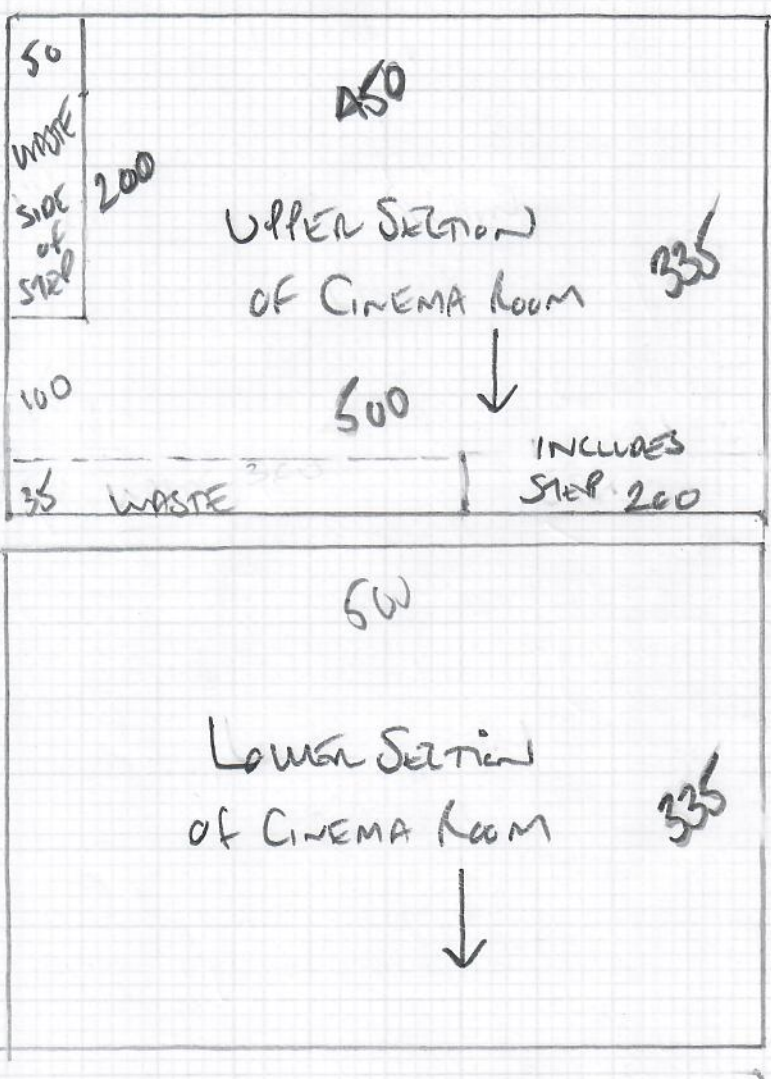 50
WASTE
SIDE
of
STEP
200
450
UPPER SECTION
OF CINEMA ROOM
335
100
500
INCLUDES
STEP 200
35 WASTE
500
LOWER SECTION
OF CINEMA ROOM
335